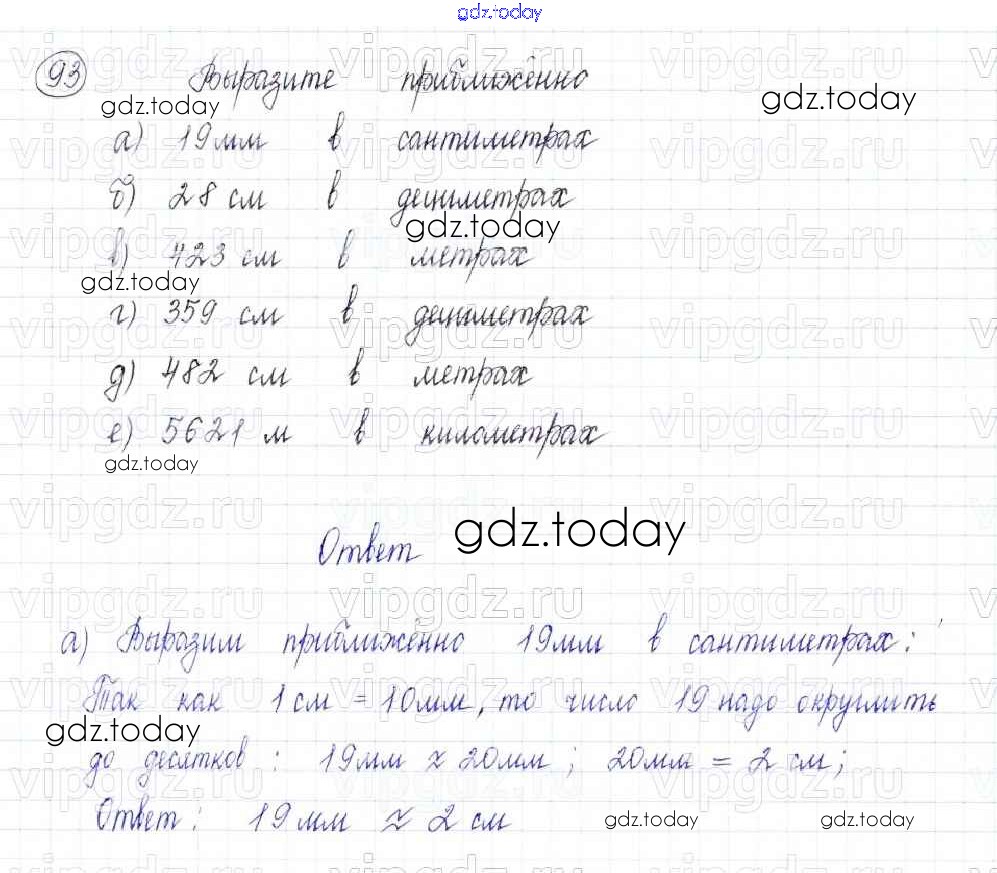 gdz.today
93 Выразите приближённо
gdz.today gdz.today
а) 19 мм в сантиметрах
б) 28 см в дециметрах
gdz.today
в) 423 см в метрах
gdz.today
г) 359 см в дециметрах
д) 482 см в метрах
е) 5621 м в километрах
gdz.today
Ответ gdz.today
а) Выразим приближённо 19 мм в сантиметрах:
Так как 1 см = 10 мм, то число 19 надо округлить
gdz.today
до десятков : 19 мм ≈ 20 мм ; 20 мм = 2 см ;
Ответ : 19 мм ≈ 2 см gdz.today gdz.today
vipgdz.ru vipgdz.ru vipgdz.ru